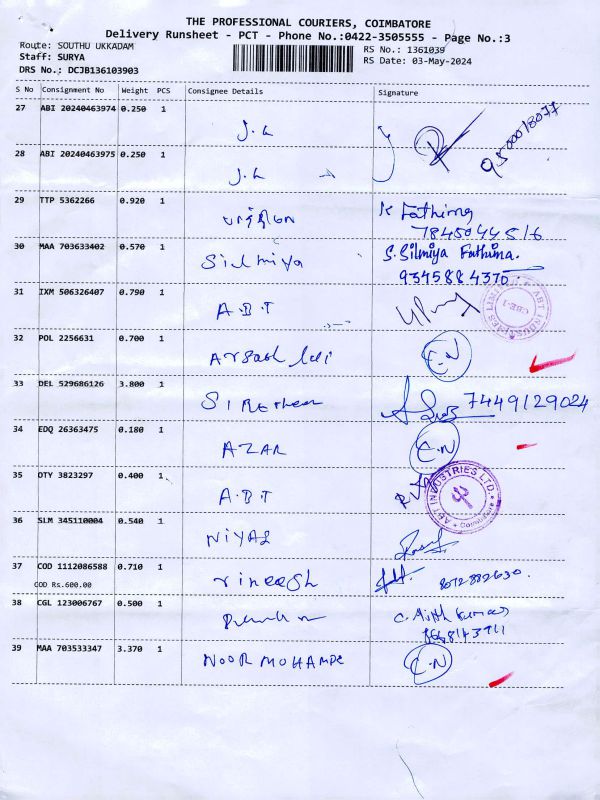 THE PROFESSIONAL COURIERS, COIMBATORE
Delivery Runsheet - PCT - Phone No.:0422-3505555 - Page No.:3
Route: SOUTHU UKKADAM
RS No.: 1361039
Staff: SURYA
RS Date: 03-May-2024
DRS No.: DCJB136103903
S No Consignment No Weight PCS Consignee Details Signature
27 ABI 20240463974 0.250 1
J.L
9500018077
28 ABI 20240463975 0.250 1
J.L
29 TTP 5362266 0.920 1
K Fathima
7845044516
30 MAA 703633402 0.570 1
Silmiya
S. Silmiya Fathima.
9345884370
31 IXM 506326407 0.790 1
A.B.T
ABT INDUSTRIES LIMITED
CBE-1
32 POL 2256631 0.700 1
C.N
33 DEL 529686126 3.800 1
7449129024
34 EDQ 26363475 0.180 1
AZAR
C.N
35 OTY 3823297 0.400 1
A.B.T
ABT INDUSTRIES LTD.
Coimbatore
36 SLM 345110004 0.540 1
NIYAS
37 COD 1112086588 0.710 1
COD Rs.600.00
Vineesh
8072882630.
38 CGL 123006767 0.500 1
39 MAA 703533347 3.370 1
NOOR MOHAMDE
C.N